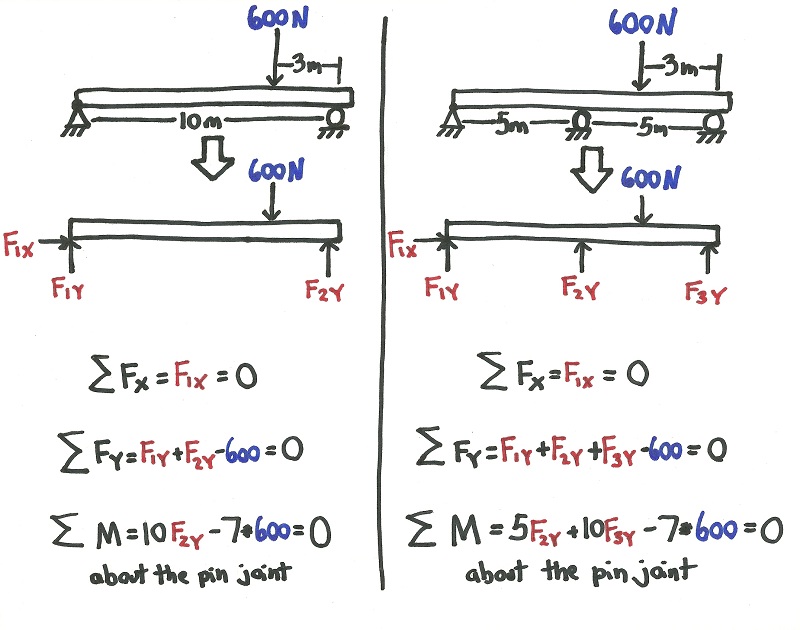 600N
3m
10m
600N
F1X
F1Y
F2Y
∑ Fx = F1X = 0
∑ FY = F1Y + F2Y - 600 = 0
∑ M = 10 F2Y - 7*600 = 0
about the pin joint
600N
3m
5m
5m
600N
F1X
F1Y
F2Y
F3Y
∑ Fx = F1X = 0
∑ FY = F1Y + F2Y + F3Y - 600 = 0
∑ M = 5F2Y + 10F3Y - 7*600 = 0
about the pin joint